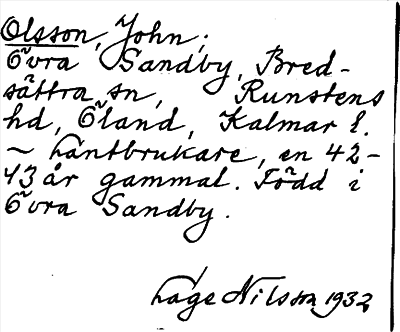 Olsson, John;
Övra Sandby, Bred-
sättra sn, Runstens
hd, Öland, Kalmar l.
~ Lantbrukare, en 42-
43 år gammal. Född i
Övra Sandby.
Lage Nilsson 1932